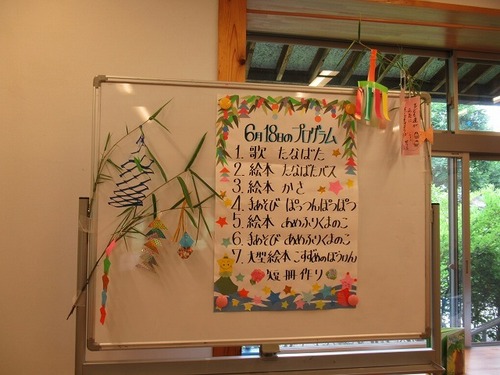 6月18日のプログラム
1. 歌 たなばた
2. 絵本 たなばたバス
3. 絵本 かさ
4. 手あそび ぱっつんぱつぱつ
5. 絵本 あめふりくまのこ
6. 手あそび あめふりくまのこ
7. 大型絵本 こすずめのぼうけん
短冊作り